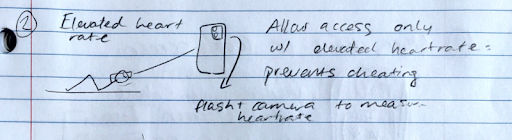 ② Elevated heart
rate
Allow access only
w/ elevated heartrate =
prevents cheating
flash + camera to measure
heartrate